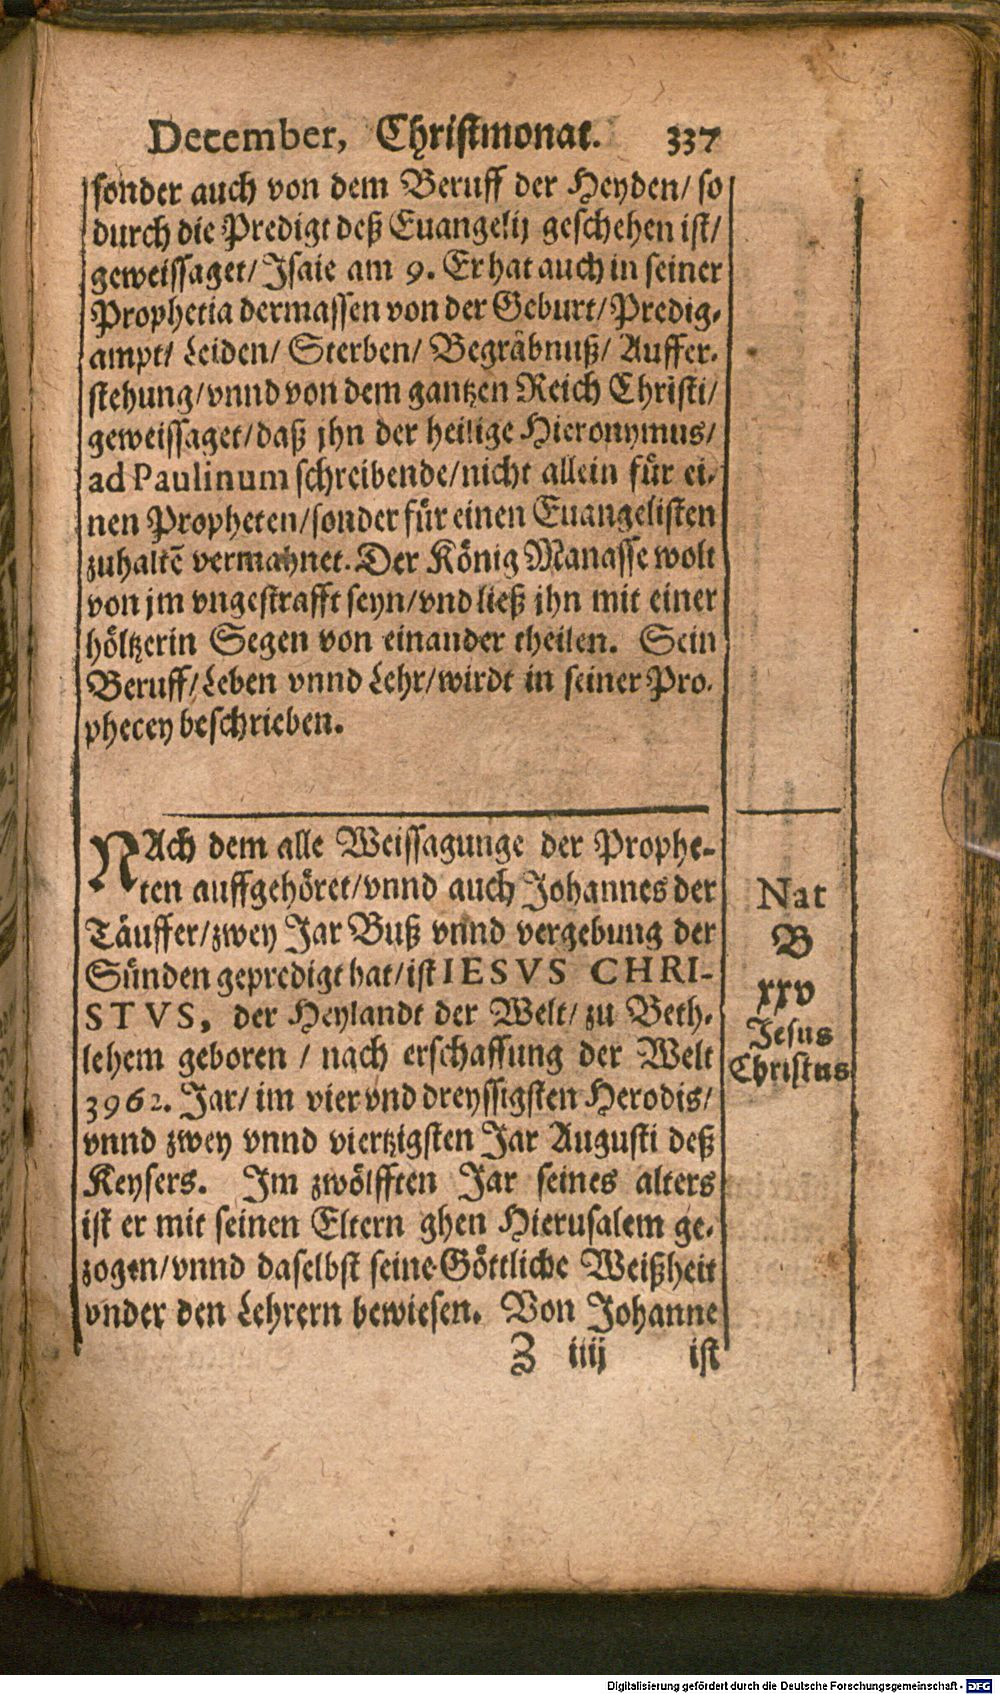 December, Christmonat. 337
sonder auch von dem Beruff der Heyden/ so
durch die Predigt deß Euangelij geschehen ist/
geweissaget/ Isaie am 9. Er hat auch in seiner
Prophetia dermassen von der Geburt/ Predig-
ampt/ Leiden/ Sterben/ Begräbnuß/ Auffer-
stehung/ vnnd von dem gantzen Reich Christi/
geweissaget/ daß jhn der heilige Hieronymus/
ad Paulinum schreibende/ nicht allein für ei-
nen Propheten/ sonder für einen Euangelisten
zuhaltẽ vermahnet. Der König Manasse wolt
von jm vngestrafft seyn/ vnd ließ jhn mit einer
höltzerin Segen von einander theilen. Sein
Beruff/ Leben vnnd Lehr/ wirdt in seiner Pro-
phecey beschrieben.
NAch dem alle Weissagunge der Prophe-
ten auffgehöret/ vnnd auch Johannes der
Täuffer/ zwey Jar Buß vnnd vergebung der
Sünden gepredigt hat/ ist IESVS CHRI-
STVS, der Heylandt der Welt/ zu Beth-
lehem geboren / nach erschaffung der Welt
3962. Jar/ im vier vnd dreyssigsten Herodis/
vnnd zwey vnnd viertzigsten Jar Augusti deß
Keysers. Im zwölfften Jar seines alters
ist er mit seinen Eltern ghen Hierusalem ge-
zogen/ vnnd daselbst seine Göttliche Weißheit
vnder den Lehrern bewiesen. Von Johanne
Z iiij ist
Nat
B
xxv
Jesus
Christus
Digitalisierung gefördert durch die Deutsche Forschungsgemeinschaft - DFG